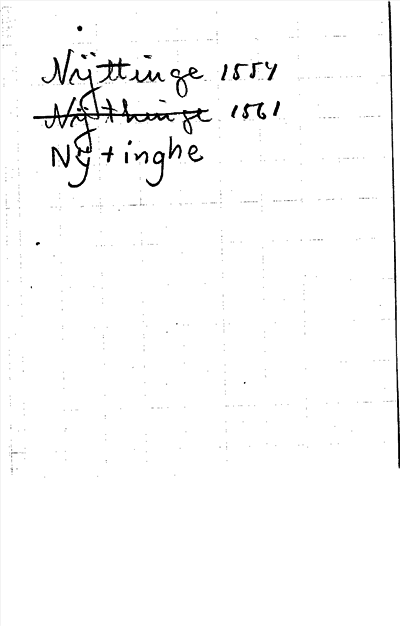 Nijttinge 1554
Nijthinge 1561
Nÿtinghe